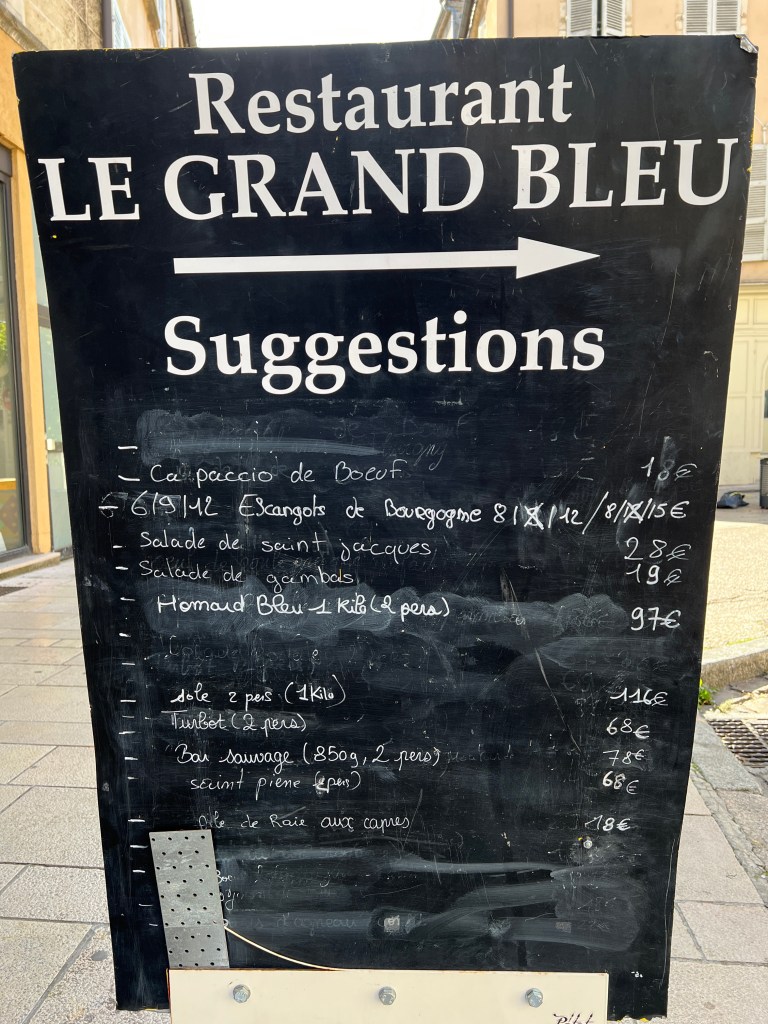 Restaurant
LE GRAND BLEU
Suggestions
- Ca paccio de Boeuf 18€
- 6/9/12 Escargots de Bourgogne 8/X/12/8/12/15€
- Salade de saint jacques 28€
- Salade de gambas 19€
Homard Bleu 1 Kilo (2 pers) 97€
- sole 2 pers (1Kilo) 116€
- Turbot (2 pers) 68€
- Bar sauvage (850g, 2 pers) 78€
- saint pierre (2 pers) 68€
- de Raie aux capres 18€
d'agneau